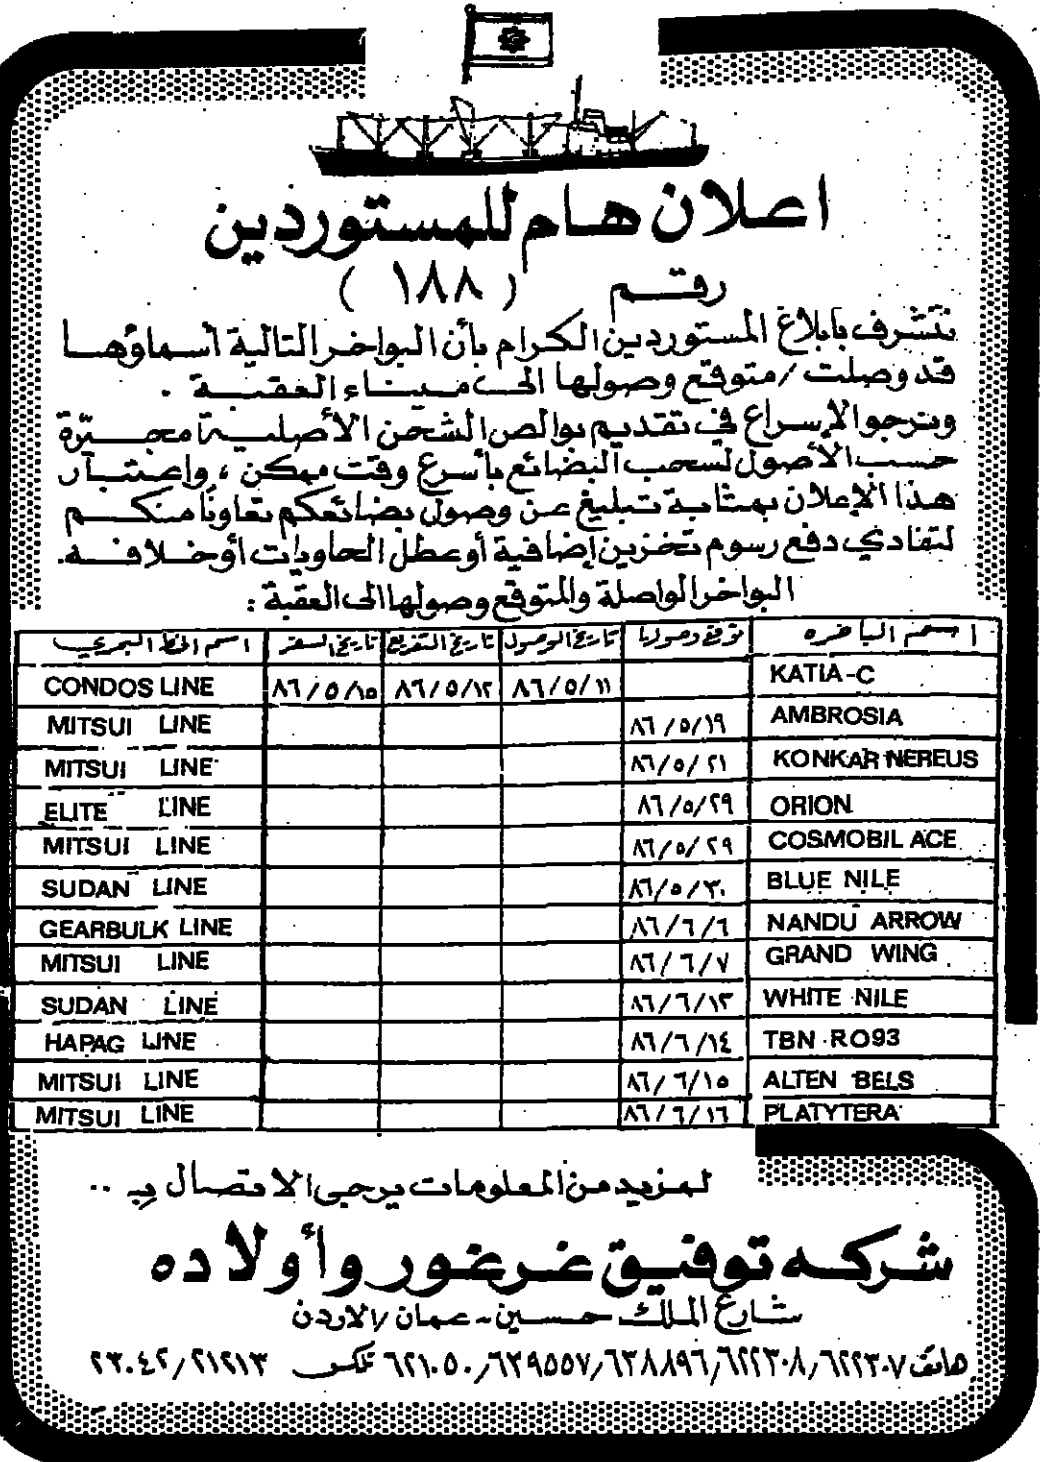 اعلان هام للمستوردين
رقم (١٨٨)
نتشرف بابلاغ المستوردين الكرام بأن البواخر التالية أسماؤها
قد وصلت/متوقع وصولها الى ميناء العقبة .
ونرجو الإسراع في تقديم بوالص الشحن الأصلية مجيّرة
حسب الأصول لسحب البضائع بأسرع وقت ممكن ، واعتبار
هذا الإعلان بمثابة تبليغ عن وصول بضائعكم تعاونًا منكم
لتفادي دفع رسوم تخزين إضافية أو عطل الحاويات أو خلافه.
البواخر الواصلة والمتوقع وصولها الى العقبة :
اسم الباخره توقع وصولها تاريخ الوصول تاريخ التفريغ تاريخ السفر اسم الخط البحري
KATIA-C ٨٦/٥/١١ ٨٦/٥/١٢ ٨٦/٥/١٥ CONDOS LINE
AMBROSIA ٨٦/٥/١٩ MITSUI LINE
KONKAR NEREUS ٨٦/٥/٢١ MITSUI LINE
ORION ٨٦/٥/٢٩ ELITE LINE
COSMOBIL ACE ٨٦/٥/٢٩ MITSUI LINE
BLUE NILE ٨٦/٥/٣٠ SUDAN LINE
NANDU ARROW ٨٦/٦/٦ GEARBULK LINE
GRAND WING ٨٦/٦/٧ MITSUI LINE
WHITE NILE ٨٦/٦/١٣ SUDAN LINE
TBN RO93 ٨٦/٦/١٤ HAPAG LINE
ALTEN BELS ٨٦/٦/١٥ MITSUI LINE
PLATYTERA ٨٦/٦/١٦ MITSUI LINE
لمزيد من المعلومات يرجى الاتصال بـ ..
شركه توفيق غرغور وأولاده
شارع الملك حسين - عمان/الاردن
هاتف ٦٢٢٣٠٧/٦٢٢٣٠٨/٦٣٨٨٩٦/٦٣٩٥٥٧/٦٢١٠٥٠ تلكس ٢١٢١٣/٢٣٠٤٢